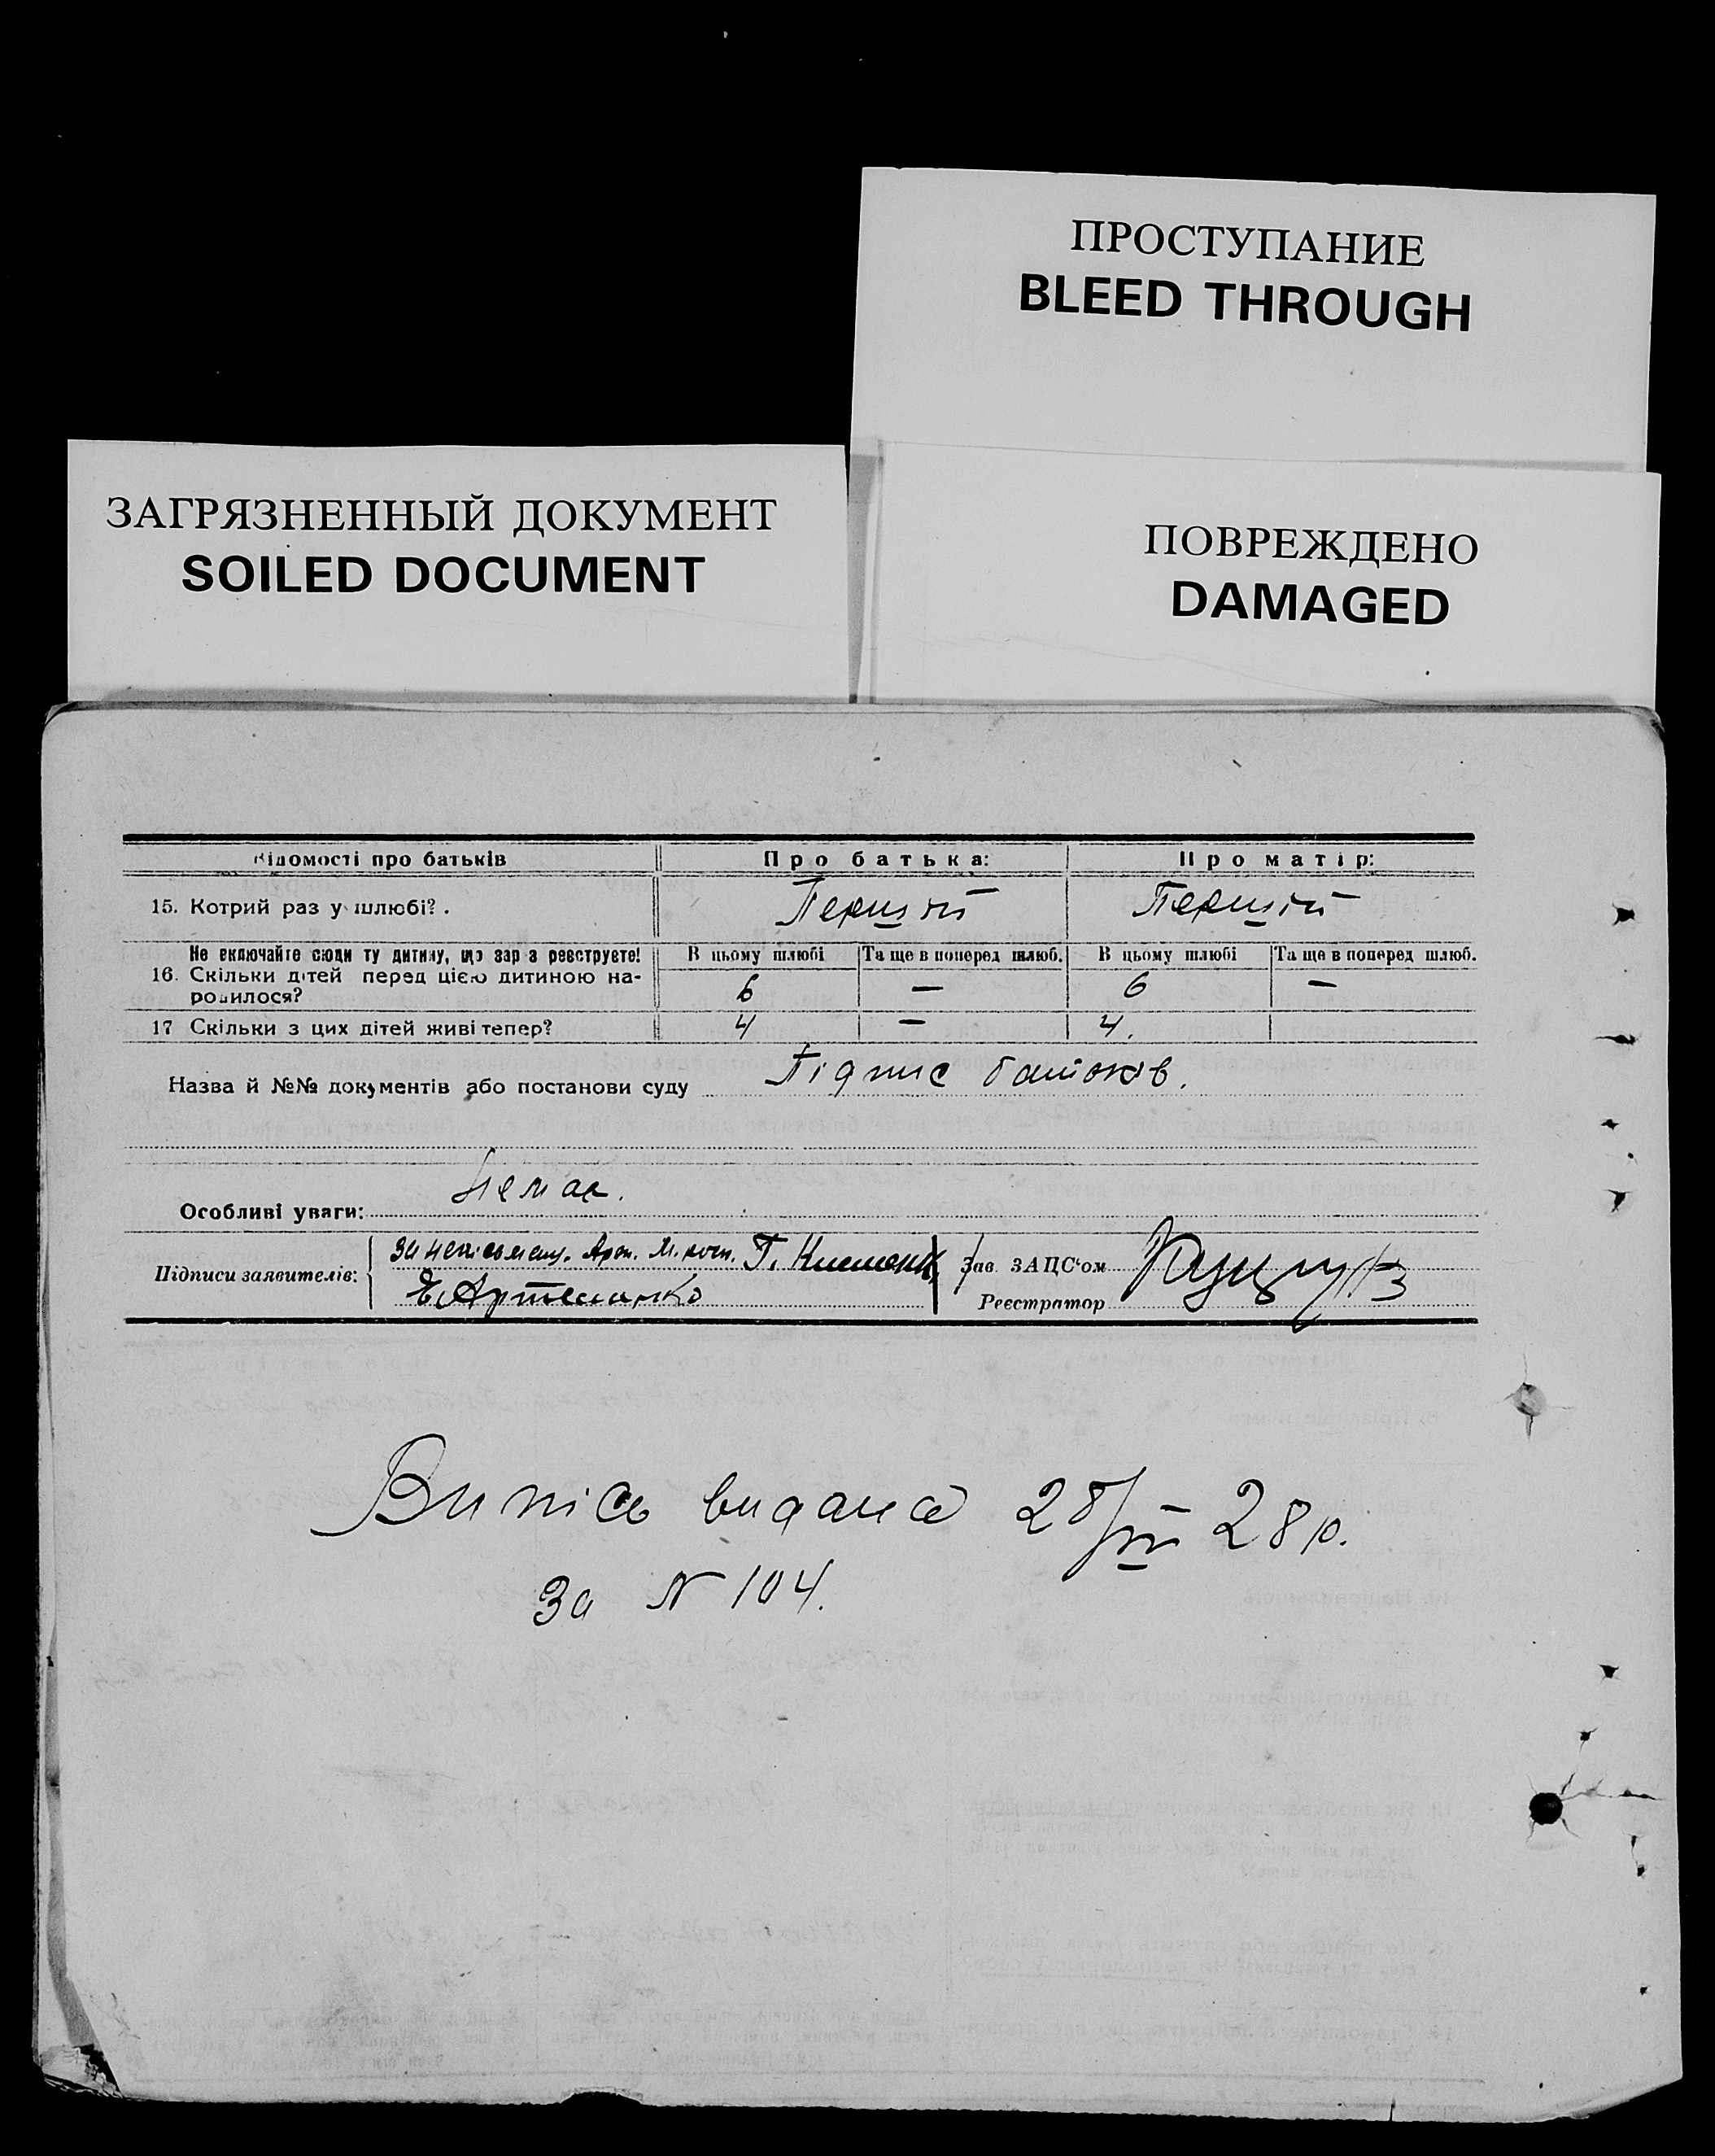 ПРОСТУПАНИЕ
BLEED THROUGH
ЗАГРЯЗНЕННЫЙ ДОКУМЕНТ
SOILED DOCUMENT
ПОВРЕЖДЕНО
DAMAGED
Відомості про батьків Про батька: Про матір:
15. Котрий раз у шлюбі? . Перший Перший
Не включайте сюди ту дитину, що зараз реєструєте! В цьому шлюбі Та ще в поперед шлюб. В цьому шлюбі Та ще в поперед шлюб.
16. Скільки дітей перед цією дитиною на-
родилося? 6 — 6 —
17 Скільки з цих дітей живі тепер? 4 — 4.
Назва й №№ документів або постанови суду Підпис батьків.
Немає.
Особливі уваги:
Підписи заявителів: За Г. Зав. ЗАЦС'ом
Е. Артеменко Реєстратор
Випісь видана 28/III 28 р.
За N 104.